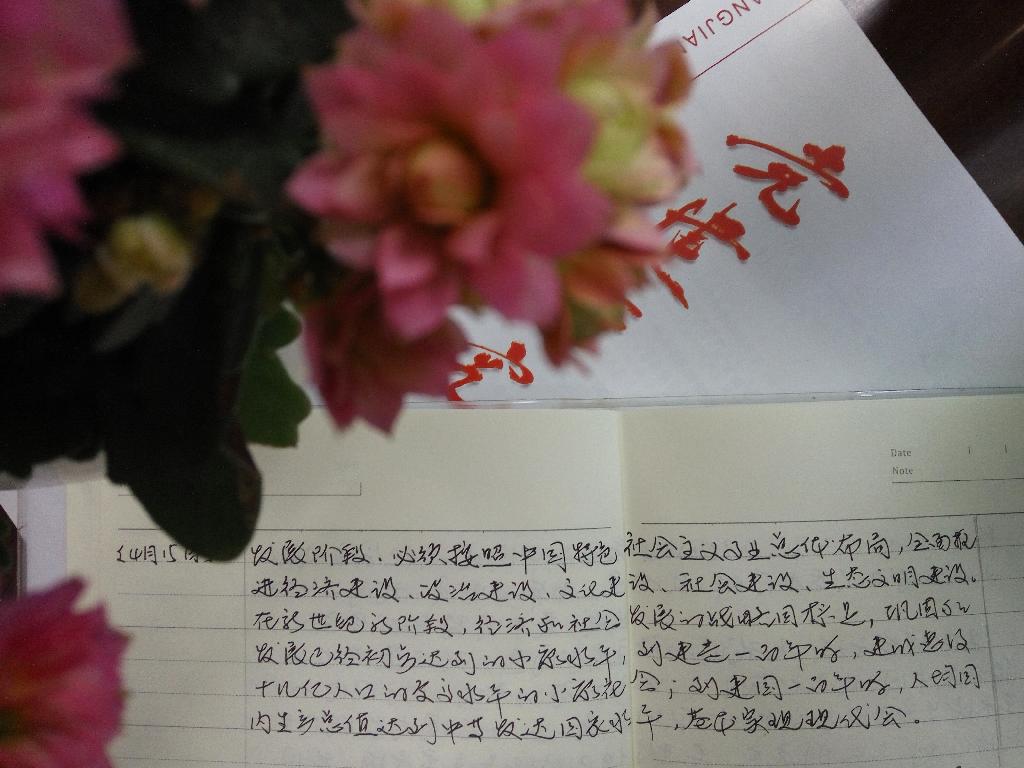 ANGJIA
Date
Note
4月15日
发展阶段，必须按照中国特色社会主义事业总体布局，全面推
进经济建设、政治建设、文化建设、社会建设、生态文明建设。
在新世纪新阶段，经济和社会发展的战略目标是，巩固和
发展已经初步达到的小康水平，到建党一百年时，建成惠及
十几亿人口的更高水平的小康社会；到建国一百年时，人均国
内生产总值达到中等发达国家水平，基本实现现代化。